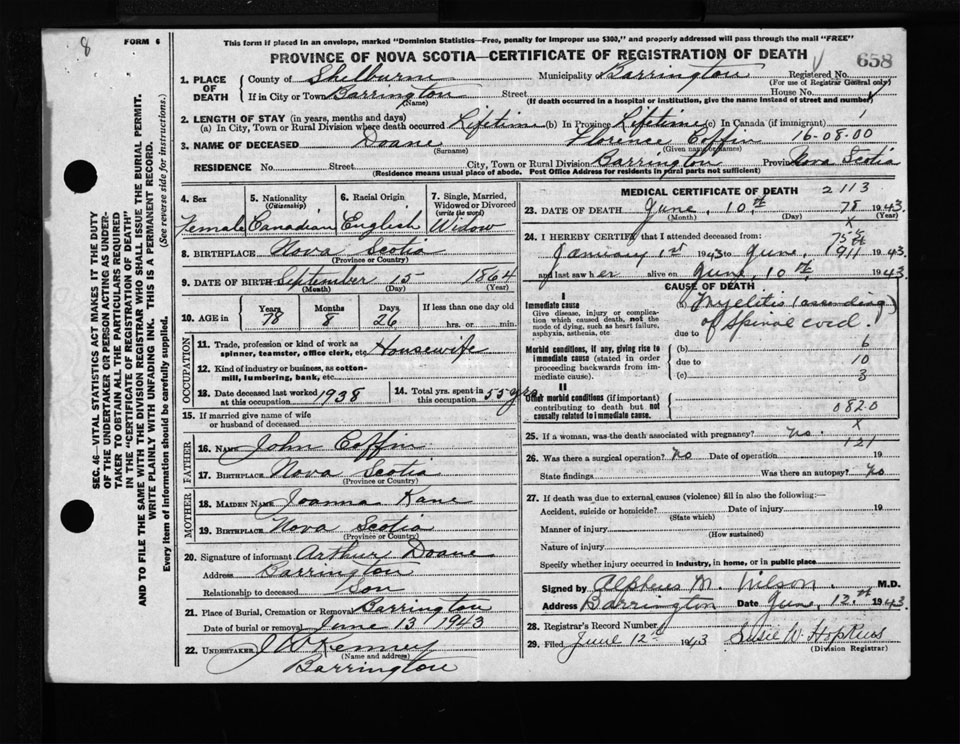 8
FORM 6
This form if placed in an envelope, marked "Dominion Statistics—Free, penalty for improper use $300," and properly addressed will pass through the mail "FREE"
PROVINCE OF NOVA SCOTIA—CERTIFICATE OF REGISTRATION OF DEATH
658
SEC. 46—VITAL STATISTICS ACT MAKES IT THE DUTY
OF THE UNDERTAKER OR PERSON ACTING AS UNDER-
TAKER TO OBTAIN ALL THE PARTICULARS REQUIRED
IN THE "CERTIFICATE OF REGISTRATION OF DEATH"
AND TO FILE THE SAME WITH THE DIVISION REGISTRAR WHO SHALL ISSUE THE BURIAL PERMIT.
WRITE PLAINLY WITH UNFADING INK. THIS IS A PERMANENT RECORD.
Every item of information should be carefully supplied. (See reverse side for instructions.)
1. PLACE OF DEATH
County of Shelburne Municipality Barrington Registered No.
(For use of Registrar General only)
If in City or Town Barrington Street House No.
(Name) (If death occurred in a hospital or institution, give the name instead of street and number)
2. LENGTH OF STAY (in years, months and days)
(a) In City, Town or Rural Division where death occurred Lifetime (b) In Province Lifetime (c) In Canada (if immigrant)
3. NAME OF DECEASED Doane Florence Coffin 16-08-00
(Surname) (Given name or names)
RESIDENCE No. Street City, Town or Rural Division Barrington Province Nova Scotia
(Residence means usual place of abode. Post Office Address for residents in rural parts not sufficient)
4. Sex Female
5. Nationality (Citizenship) Canadian
6. Racial Origin English
7. Single, Married, Widowed or Divorced (write the word) Widow
8. BIRTHPLACE Nova Scotia
(Province or Country)
9. DATE OF BIRTH September 15 1864
(Month) (Day) (Year)
10. AGE in Years 78 Months 8 Days 26 If less than one day old hrs. or min.
OCCUPATION
11. Trade, profession or kind of work as spinner, teamster, office clerk, etc. Housewife
12. Kind of industry or business, as cotton-mill, lumbering, bank, etc.
13. Date deceased last worked at this occupation 1938
14. Total yrs. spent in this occupation 55 yrs
15. If married give name of wife or husband of deceased
FATHER
16. NAME John Coffin
17. BIRTHPLACE Nova Scotia
(Province or Country)
MOTHER
18. MAIDEN NAME Joanna Kane
19. BIRTHPLACE Nova Scotia
(Province or Country)
20. Signature of informant Arthur Doane
Address Barrington
Relationship to deceased Son
21. Place of Burial, Cremation or Removal Barrington
Date of burial or removal June 13 1943
22. UNDERTAKER J W Kenney
(Name and address)
Barrington
MEDICAL CERTIFICATE OF DEATH 2113
23. DATE OF DEATH June, 10th 78 1943
(Month) (Day) (Year)
24. I HEREBY CERTIFY that I attended deceased from:
January 1st 1943 to June, 911 1943
and last saw her alive on June 10th 1943
CAUSE OF DEATH
I
Immediate cause
Give disease, injury or complication which caused death, not the mode of dying, such as heart failure, asphyxia, asthenia, etc.
Myelitis (ascending)
of Spinal cord.
due to
Morbid conditions, if any, giving rise to immediate cause (stated in order proceeding backwards from immediate cause).
(b) 6
due to 10
(c) 3
II
Other morbid conditions (if important) contributing to death but not causally related to immediate cause.
0820
25. If a woman, was the death associated with pregnancy? no. X
121
26. Was there a surgical operation? No Date of operation 19
State findings Was there an autopsy? No
27. If death was due to external causes (violence) fill in also the following:—
Accident, suicide or homicide? Date of injury 19
(State which)
Manner of injury
(How sustained)
Nature of injury
Specify whether injury occurred in industry, in home, or in public place
Signed by Alpheus M. Wilson. M.D.
Address Barrington Date June, 12th 1943
28. Registrar's Record Number
29. Filed June 12th 1943 Susie W Hopkins
(Division Registrar)